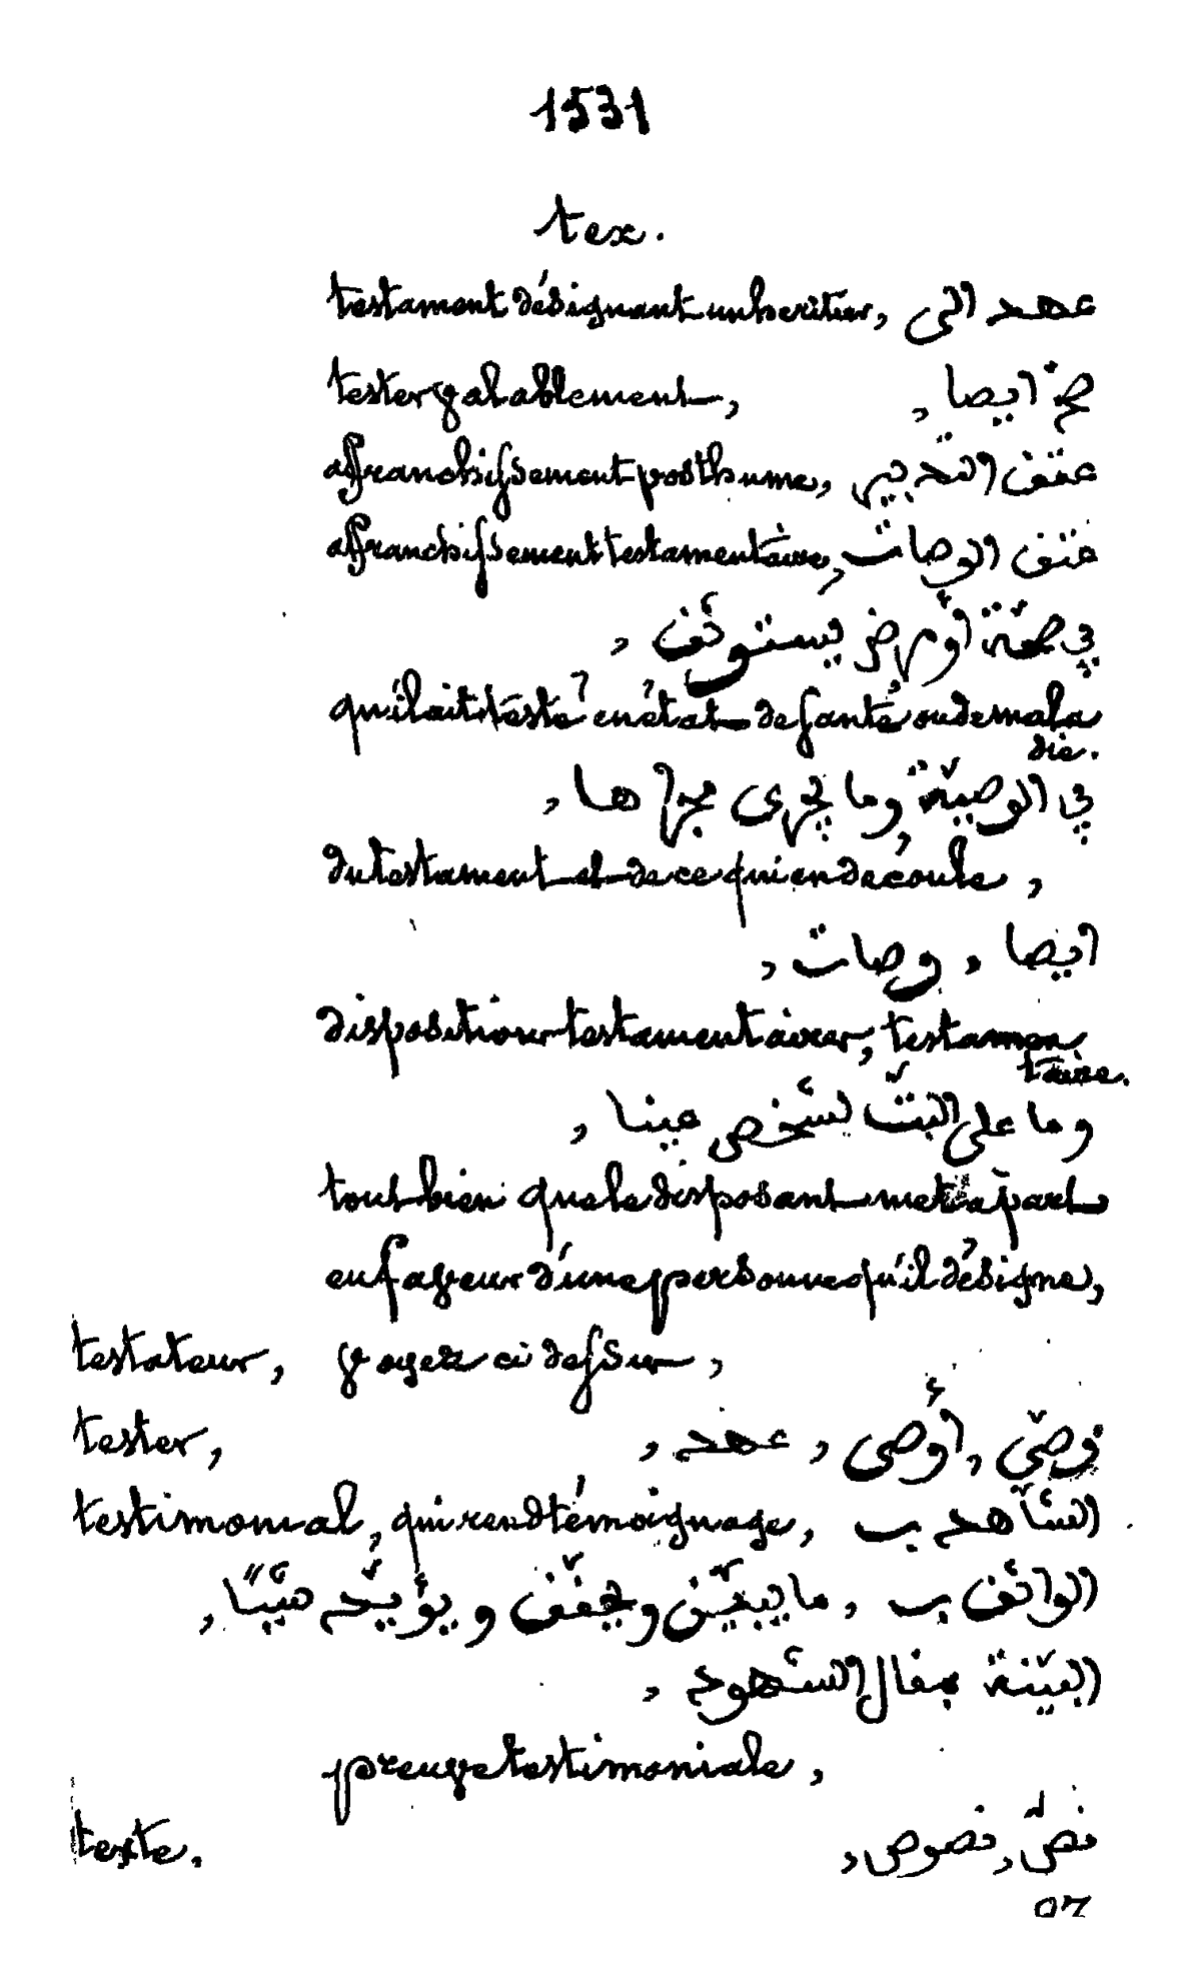 1531
tex.
testament désignant un heritier, عهد الى
tester valablement, صحّ ايصا,
affranchissement posthume, عتق التّدبير
affranchissement testamentaire, عتق الوصات
في صحّة أو مرض يستوثق,
qu'il ait testé en état de santé ou de mala
die.
في الوصيّة وما يجرى مجراها,
du testament et de ce qui en découle,
ايصا, وصات,
dispositions testamentaires, testamen
taire.
وما على البتّ لشخص عينا,
tout bien que le disposant met à part
en faveur d'une personne qu'il désigne,
testateur, voyez ci dessus,
tester, وصّى, أوصى, عهد,
testimonial, qui rend témoignage, الشّاهد ب
الواثق ب, ما يبيّن ويحقّق و يؤيّد
البيّنة بمقال الشهود,
preuve testimoniale,
texte. نصّ, نصوص,